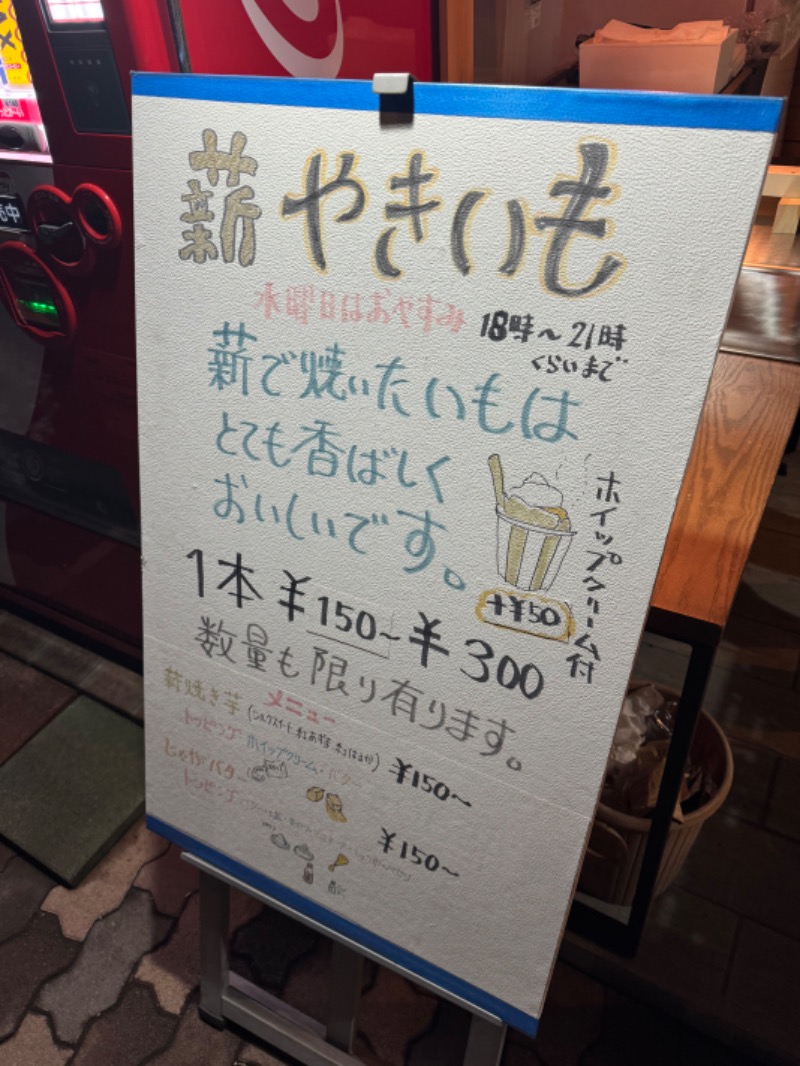 薪 やきいも
水曜日はおやすみ 18時～21時
くらいまで
薪で焼いたいもは
とても香ばしく
おいしいです。
ホイップクリーム付
+¥50
1本 ¥150~¥300
数量も限り有ります。
メニュー
薪焼き芋 (シルクスイート 紅あずま 紅はるか) ¥150~
トッピング ホイップクリーム・バター
じゃがバター ¥150~
トッピング